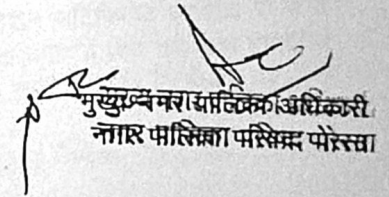 मुख्य नगरपालिका अधिकारी
नगर पालिका परिषद पोरसा